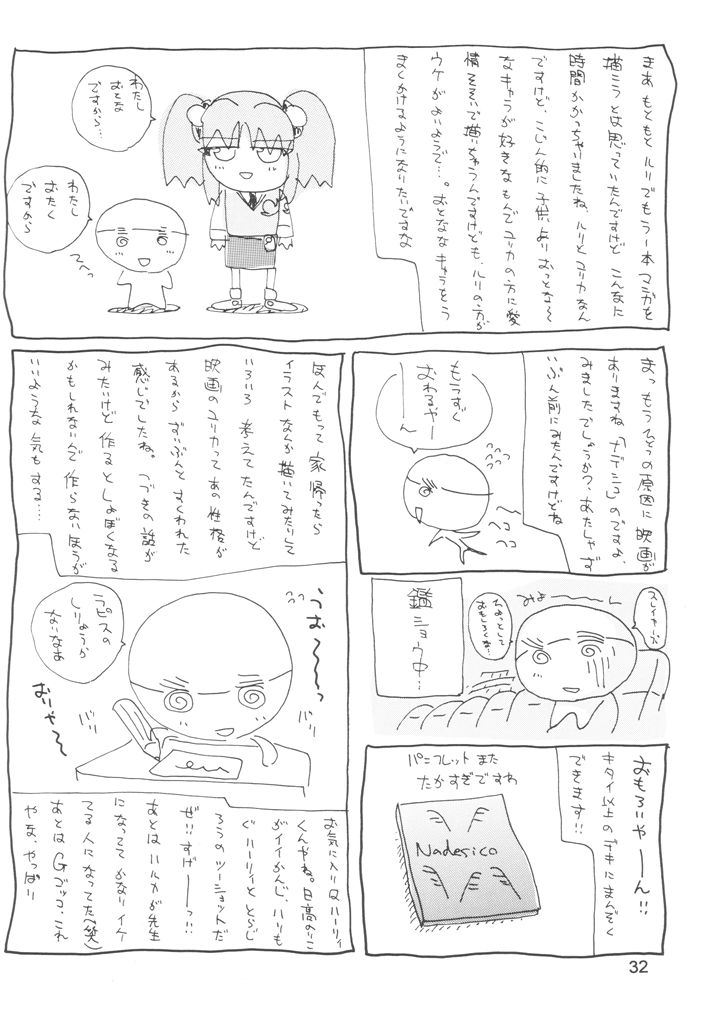 まあ もともと ルリでもう一本マンガを
描こうとは思っていたんですけど こんなに
時間かかっちゃいましたね。ルリとユリカなん
ですけど、こじん的に子供よりおっとな〜
なキャラが好きなもんでユリカの方に愛
情そそいで描いちゃうんですけども、ルリの方が
ウケがよいようで…。おとななキャラをう
まくかけるようになりたいですな
わたし
おとな
ですから…
わたし
おたく
ですから
てへっ
まっ もうひとつの原因に映画が
ありますね「ナデシコ」のですよ、
みましたでしょうか?、あたしゃず
いぶん前にみたんですけどね
もうすぐ
おわるやー
ーん
ヘコ
ヘコ
スレイヤーズ
みょーーーん
ひょっとして
おもしろくな…
鑑ショウ中…
おもろいやーーん!!
キタイ以上のデキにまんぞく
できます!!
パンフレットまた
たかすぎですわ
Nadesico
ほんでもって家帰ったら
イラストなんか描いてみたりして
いろいろ 考えてたんですけど
映画のユリカってあの性格が
あるからずいぶんとすくわれた
感じでしたね。つづきの話が
みたいけど作るとしょぼくなる
かもしれないんで作らないほうが
いいような気もする…
うお〜〜っ
ラピスの
しりょうが
ないなぁ
おりゃ〜
バリ
バリ
お気に入りはハーリィ
くんやね。日高のりこ
がイイかんじ、ハリも
ぐハーリィととらじ
ろうのツーショットだ
ぜ!!すげーーっ!!
あとはハルカが先生
になっててかなりイケ
てる人になってた(笑)
あとはGゴッコ、これ
やね、やっぱり
32